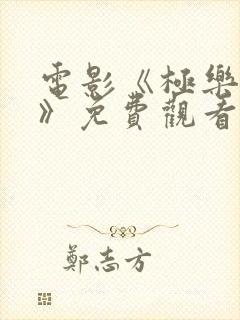 電影《極樂
》免費觀看
鄭志方